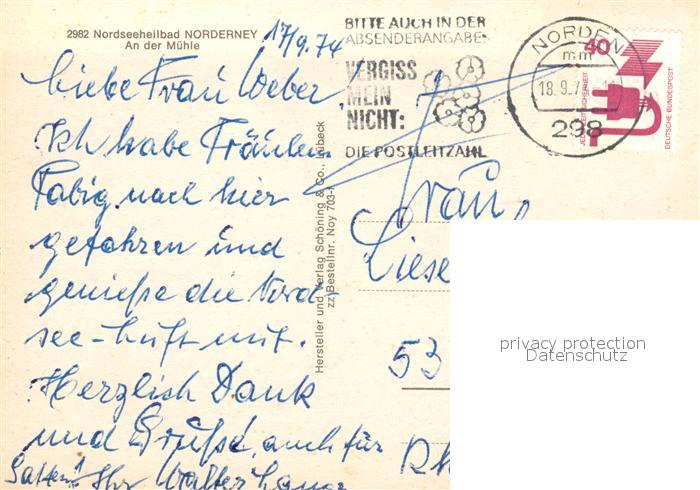 2982 Nordseeheilbad NORDERNEY
An der Mühle
17/9.74
Liebe Frau Weber,
Ich habe Fräulein
Fabig nach hier
gefahren und
genieße die Nord-
see-Luft mit.
Herzlich Dank
und Grüße, auch für
Ihr Walter
Hersteller und Verlag Schöning & Co., Lübeck
Bestellnr. Noy 703
BITTE AUCH IN DER
ABSENDERANGABE:
VERGISS
MEIN
NICHT:
DIE POSTLEITZAHL
NORDEN
mm
18.9.
298
40
JEDERZEIT SICHERHEIT
DEUTSCHE BUNDESPOST
Frau
Liese
53
Rh
privacy protection
Datenschutz